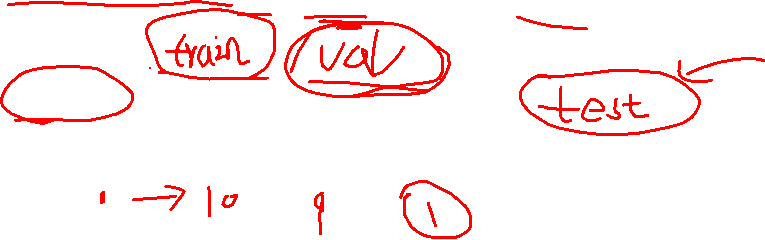 train val
test
1 → 10 9 1